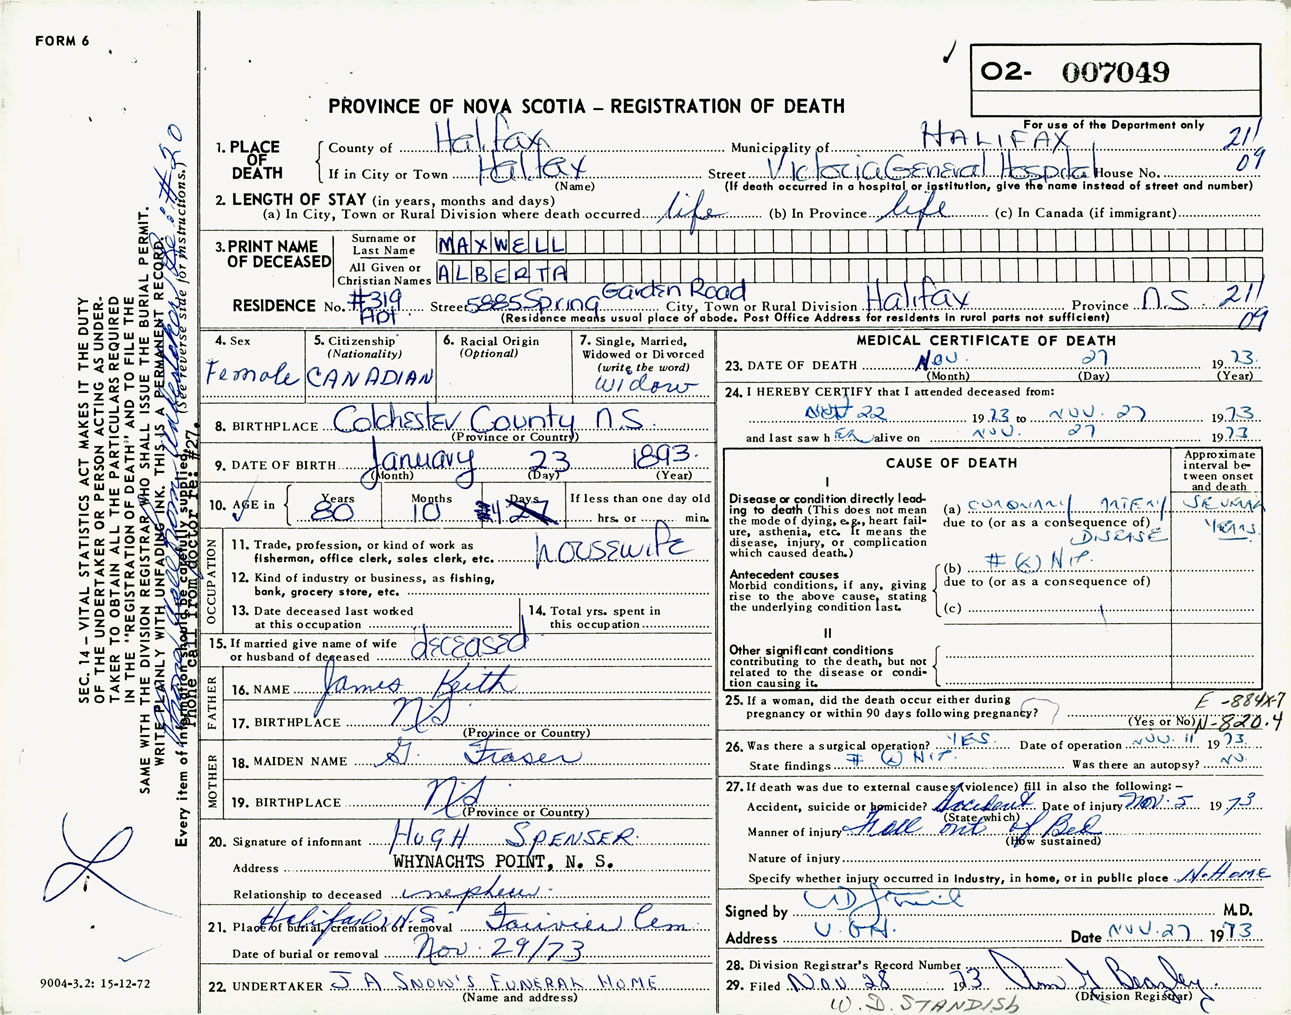 FORM 6
O2- 007049
PROVINCE OF NOVA SCOTIA – REGISTRATION OF DEATH
For use of the Department only
1. PLACE OF DEATH
County of Halifax Municipality of HALIFAX 21/
If in City or Town Halifax Street Victoria General Hospital House No. 09
(Name) (If death occurred in a hospital or institution, give the name instead of street and number)
2. LENGTH OF STAY (in years, months and days)
(a) In City, Town or Rural Division where death occurred life (b) In Province life (c) In Canada (if immigrant)
3. PRINT NAME OF DECEASED
Surname or Last Name MAXWELL
All Given or Christian Names ALBERTA
RESIDENCE No. #319 Apt Street 5885 Spring Garden Road City, Town or Rural Division Halifax Province N.S. 21/
(Residence means usual place of abode. Post Office Address for residents in rural parts not sufficient) 09
4. Sex
Female
5. Citizenship (Nationality)
CANADIAN
6. Racial Origin (Optional)
7. Single, Married, Widowed or Divorced (write the word)
Widow
8. BIRTHPLACE Colchester County N.S.
(Province or Country)
9. DATE OF BIRTH January 23 1893
(Month) (Day) (Year)
10. AGE in Years 80 Months 10 Days 4 27 If less than one day old
hrs. or min.
OCCUPATION
11. Trade, profession, or kind of work as
fisherman, office clerk, sales clerk, etc. housewife
12. Kind of industry or business, as fishing,
bank, grocery store, etc.
13. Date deceased last worked
at this occupation
14. Total yrs. spent in
this occupation
15. If married give name of wife
or husband of deceased deceased
FATHER
16. NAME James Keith
17. BIRTHPLACE NS
(Province or Country)
MOTHER
18. MAIDEN NAME G. Fraser
19. BIRTHPLACE NS
(Province or Country)
20. Signature of informant HUGH SPENSER
Address WHYNACHTS POINT, N. S.
Relationship to deceased nephew
21. Place of burial, cremation or removal Halifax N.S. Fairview Cem
Date of burial or removal Nov. 29/73
22. UNDERTAKER J A SNOW'S FUNERAL HOME
(Name and address)
MEDICAL CERTIFICATE OF DEATH
23. DATE OF DEATH Nov. 27 1973
(Month) (Day) (Year)
24. I HEREBY CERTIFY that I attended deceased from:
Nov 22 1973 to Nov. 27 1973
and last saw her alive on Nov. 27 1973
CAUSE OF DEATH
Approximate interval between onset and death
I
Disease or condition directly leading to death (This does not mean the mode of dying, e.g., heart failure, asthenia, etc. It means the disease, injury, or complication which caused death.)
(a) CORONARY ARTERY SEVERAL
due to (or as a consequence of) DISEASE YEARS
(b) # (L) Hip
Antecedent causes
Morbid conditions, if any, giving rise to the above cause, stating the underlying condition last.
due to (or as a consequence of)
(c)
II
Other significant conditions
contributing to the death, but not related to the disease or condition causing it.
25. If a woman, did the death occur either during E -884X-7
pregnancy or within 90 days following pregnancy? (Yes or No) N-820.4
26. Was there a surgical operation? YES Date of operation Nov. 11 1973
State findings # (L) Hip Was there an autopsy? NO
27. If death was due to external causes (violence) fill in also the following: –
Accident, suicide or homicide? Accident Date of injury Nov. 5 1973
(State which)
Manner of injury Fall out of Bed
(How sustained)
Nature of injury
Specify whether injury occurred in industry, in home, or in public place N. HOME
Signed by M.D.
Address V.G.H. Date NOV. 27 1973
28. Division Registrar's Record Number
29. Filed NOV 28 1973
(Division Registrar)
W. D. STANDISH
SEC. 14 – VITAL STATISTICS ACT MAKES IT THE DUTY
OF THE UNDERTAKER OR PERSON ACTING AS UNDER-
TAKER TO OBTAIN ALL THE PARTICULARS REQUIRED
IN THE "REGISTRATION OF DEATH" AND TO FILE THE
SAME WITH THE DIVISION REGISTRAR WHO SHALL ISSUE THE BURIAL PERMIT.
WRITE PLAINLY WITH UNFADING INK. THIS IS A PERMANENT RECORD.
Every item of information should be carefully supplied. (See reverse side for instructions.)
Phone call from doctor re: #27.
9004-3.2: 15-12-72